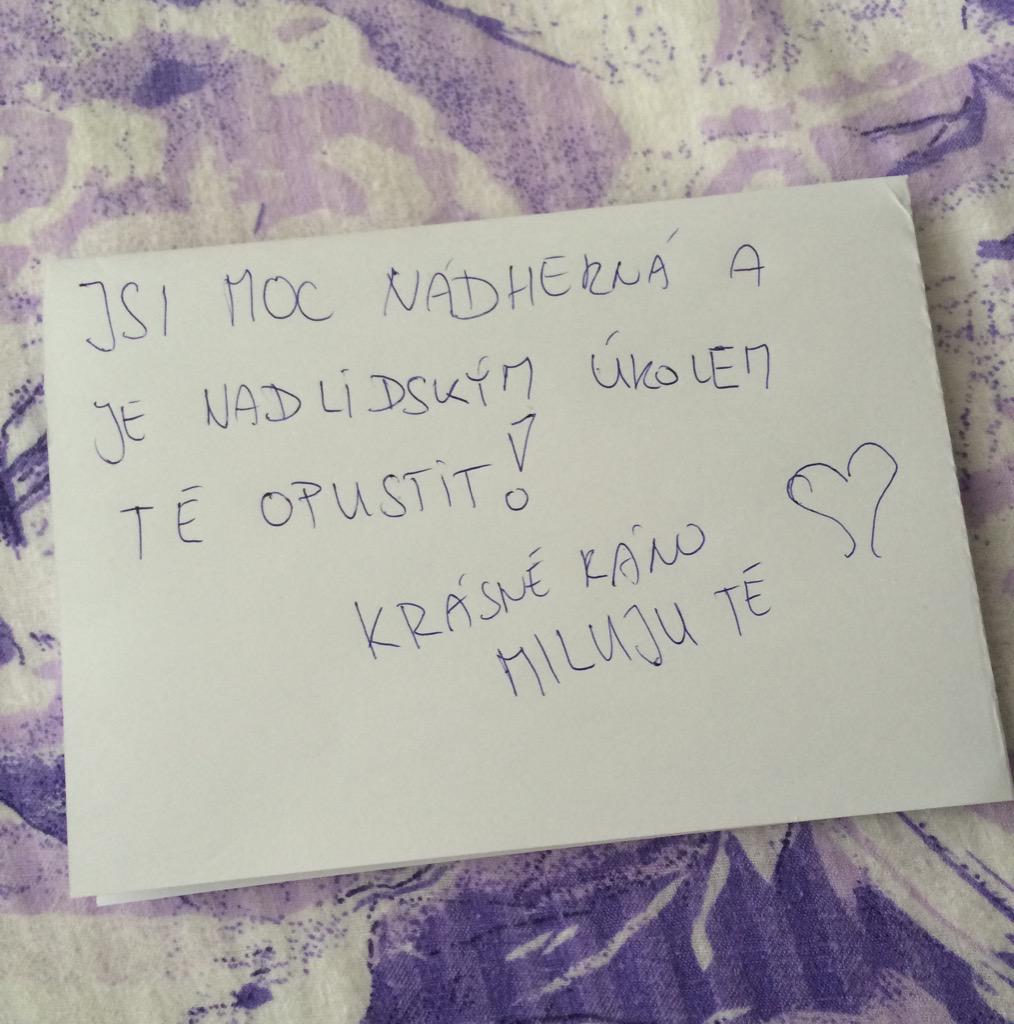 JSI MOC NÁDHERNÁ A
JE NADLIDSKÝM ÚKOLEM
TĚ OPUSTIT!
KRÁSNÉ RÁNO
MILUJU TĚ